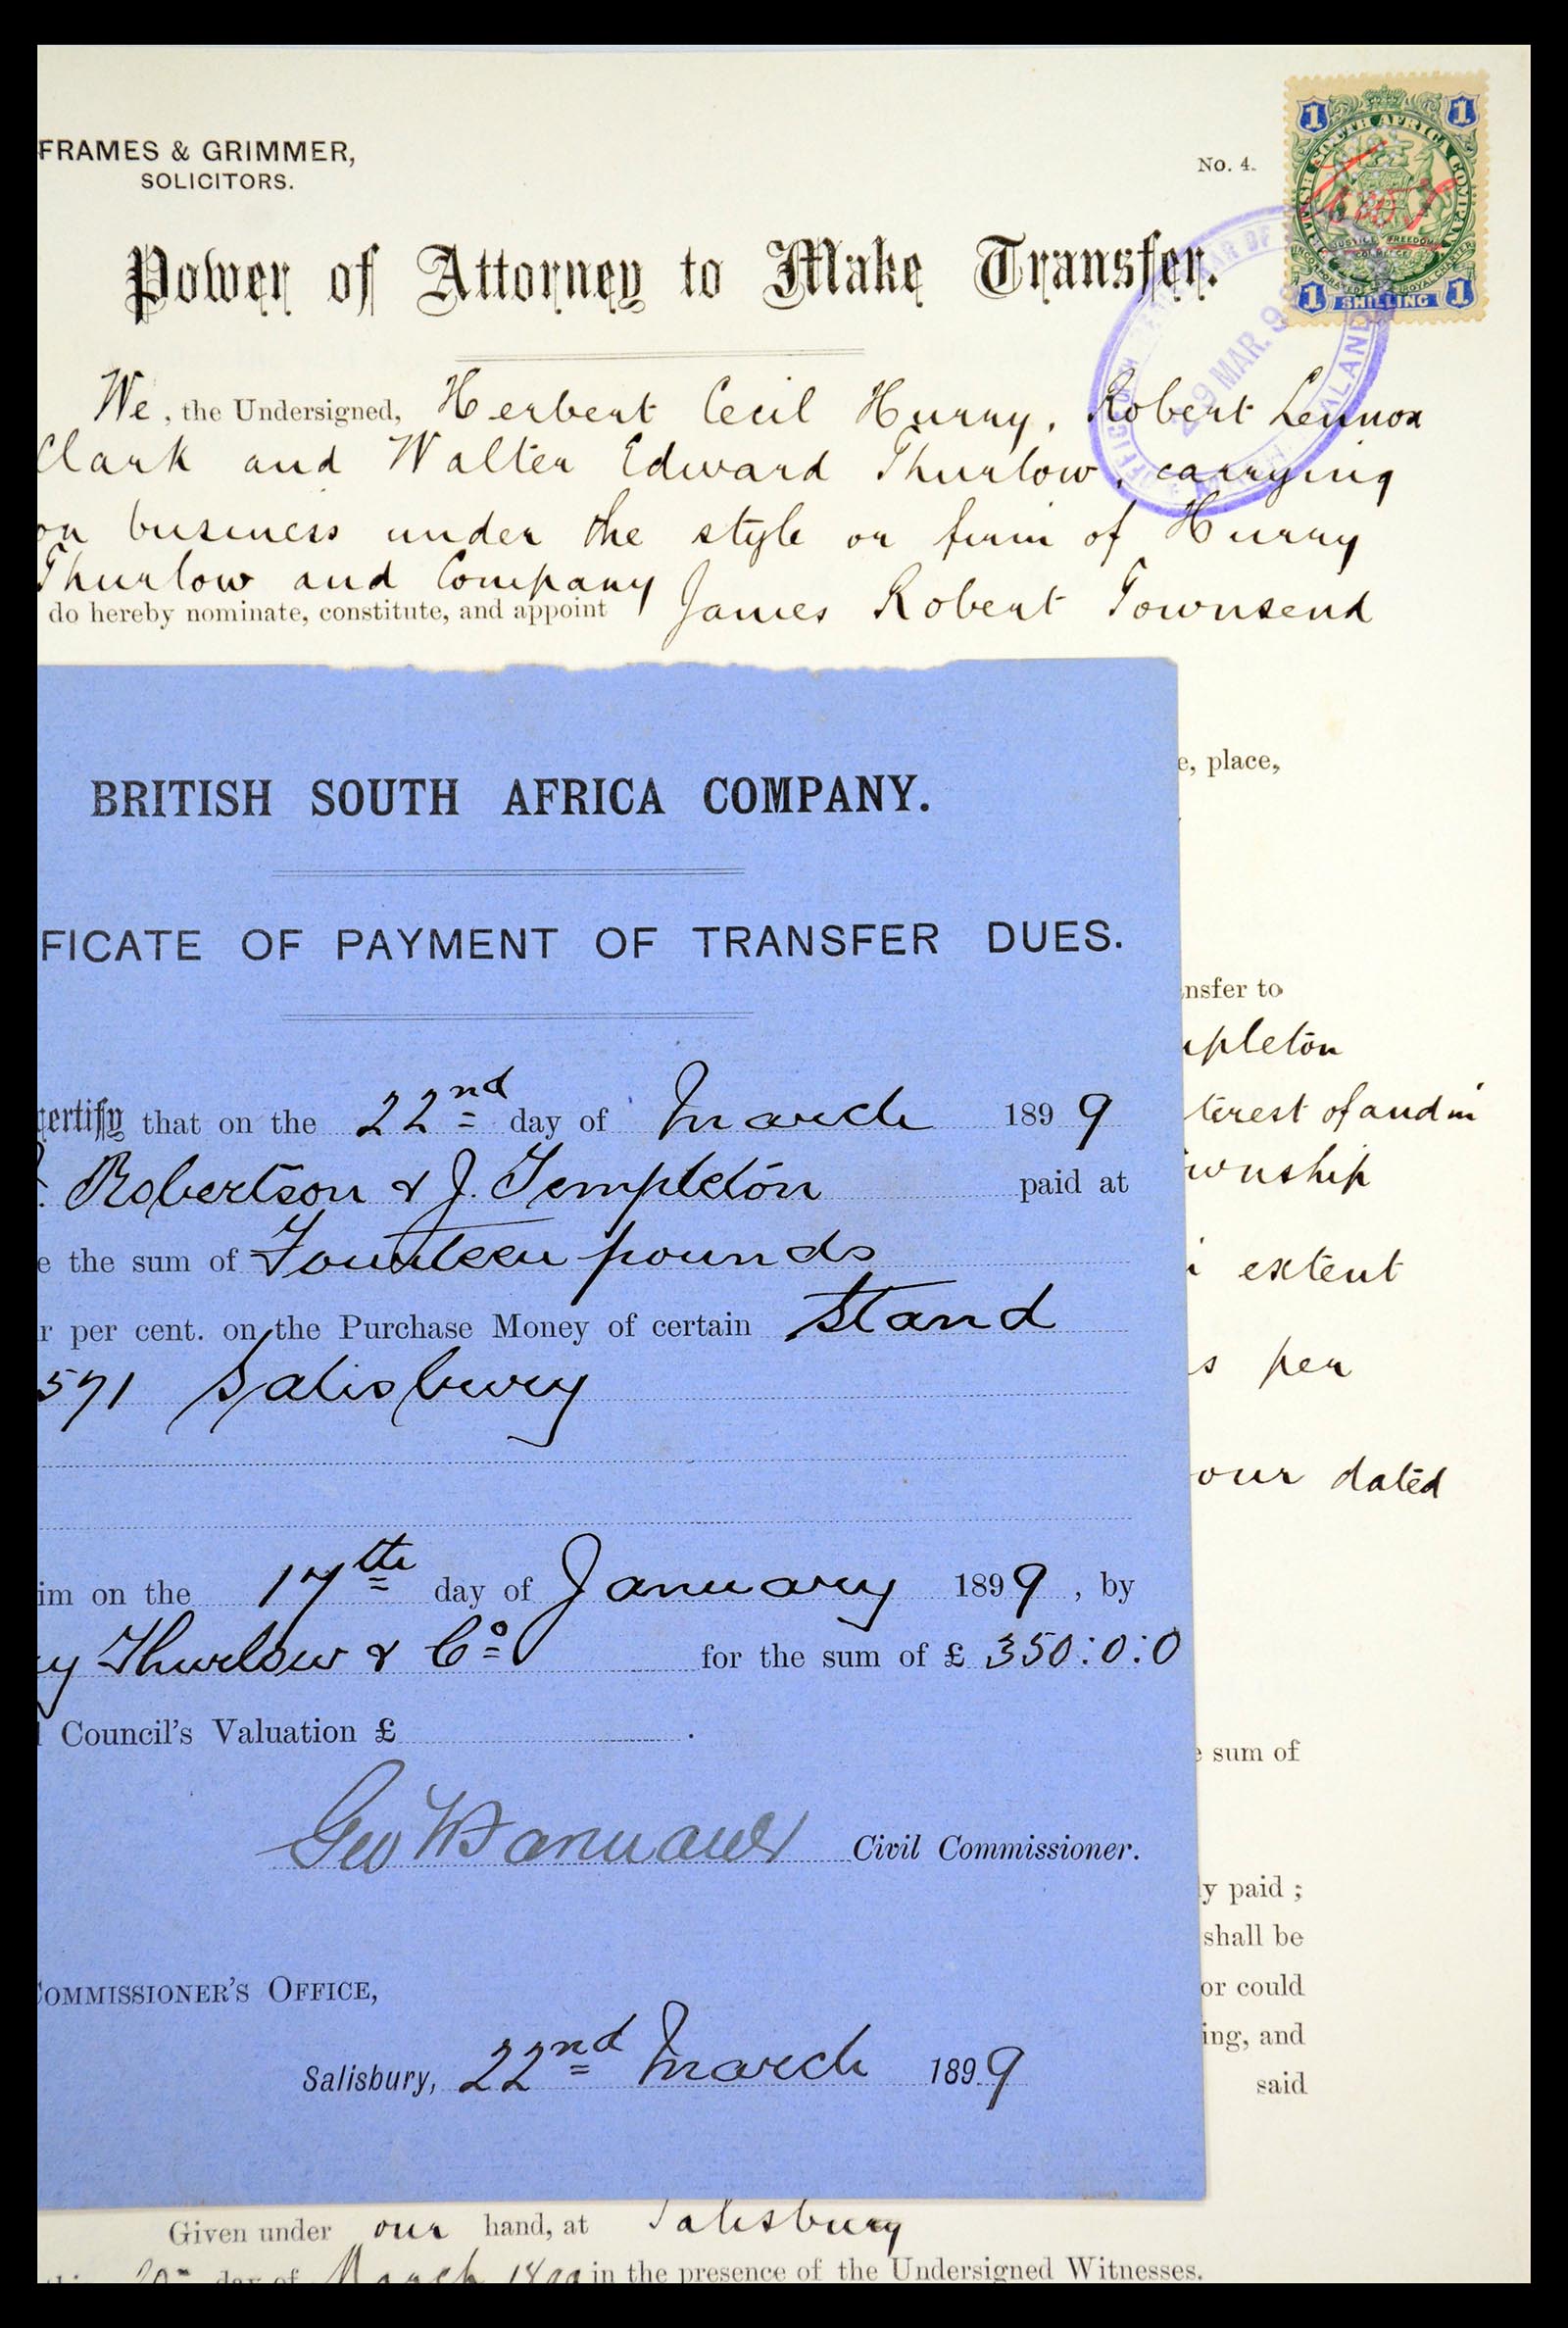 FRAMES & GRIMMER,
SOLICITORS.
No. 4.
1 1
BRITISH SOUTH AFRICA COMPANY
JUSTICE FREEDOM
COMMERCE
1 SHILLING 1
Power of Attorney to Make Transfer.
29 MAR. 9
We, the Undersigned, Herbert Cecil Hurry, Robert Lennox
Clark and Walter Edward Thurlow, carrying
on business under the style or firm of Hurry
Thurlow and Company
do hereby nominate, constitute, and appoint James Robert Townsend
e, place,
nsfer to
mpleton
terest of and in
ownship
extent
s per
our dated
e sum of
y paid ;
shall be
or could
ing, and
said
BRITISH SOUTH AFRICA COMPANY.
FICATE OF PAYMENT OF TRANSFER DUES.
certify that on the 22nd day of March 1899
Robertson & J. Templeton paid at
e the sum of Fourteen pounds
r per cent. on the Purchase Money of certain Stand
571 Salisbury
im on the 17th day of January 1899, by
y Thurlow & Co for the sum of £ 350:0:0
l Council's Valuation £ .
Geo Civil Commissioner.
COMMISSIONER'S OFFICE,
Salisbury, 22nd March 1899
Given under our hand, at Salisbury
day of March 1899 in the presence of the Undersigned Witnesses.